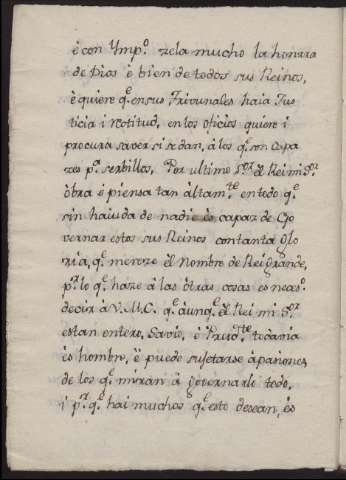 è con Ymp.º zela mucho la honrra
de Dios è bien de todos sus Reinos,
è quiere q.e en sus Trivunales haia Jus
ticia i rectitud, en los ofícios quiere i
procura saver si se dan, à los q.e son capa
zes p.a serbillos, Por ultimo S.or èl Rei mi S.or
òbra è piensa tan àltam.te en todo q.e
sin haiuda de nadie ès capaz de Go
vernar estos sus Reinos con tanta Glo
ria, q.e mereze èl Nombre de Rei Grande,
p.r lo q.e haze à las òtras cosas es neces.º
decir à V. M. C. q.e àunq.e èl Rei mi S.or
es tan entero, Savio, è Prud.te todavia
ès hombre, è puede sujetarse à pasiones
de los q.e miran à governarle todo,
i p.r q.e hai muchos q.e esto desean, ès